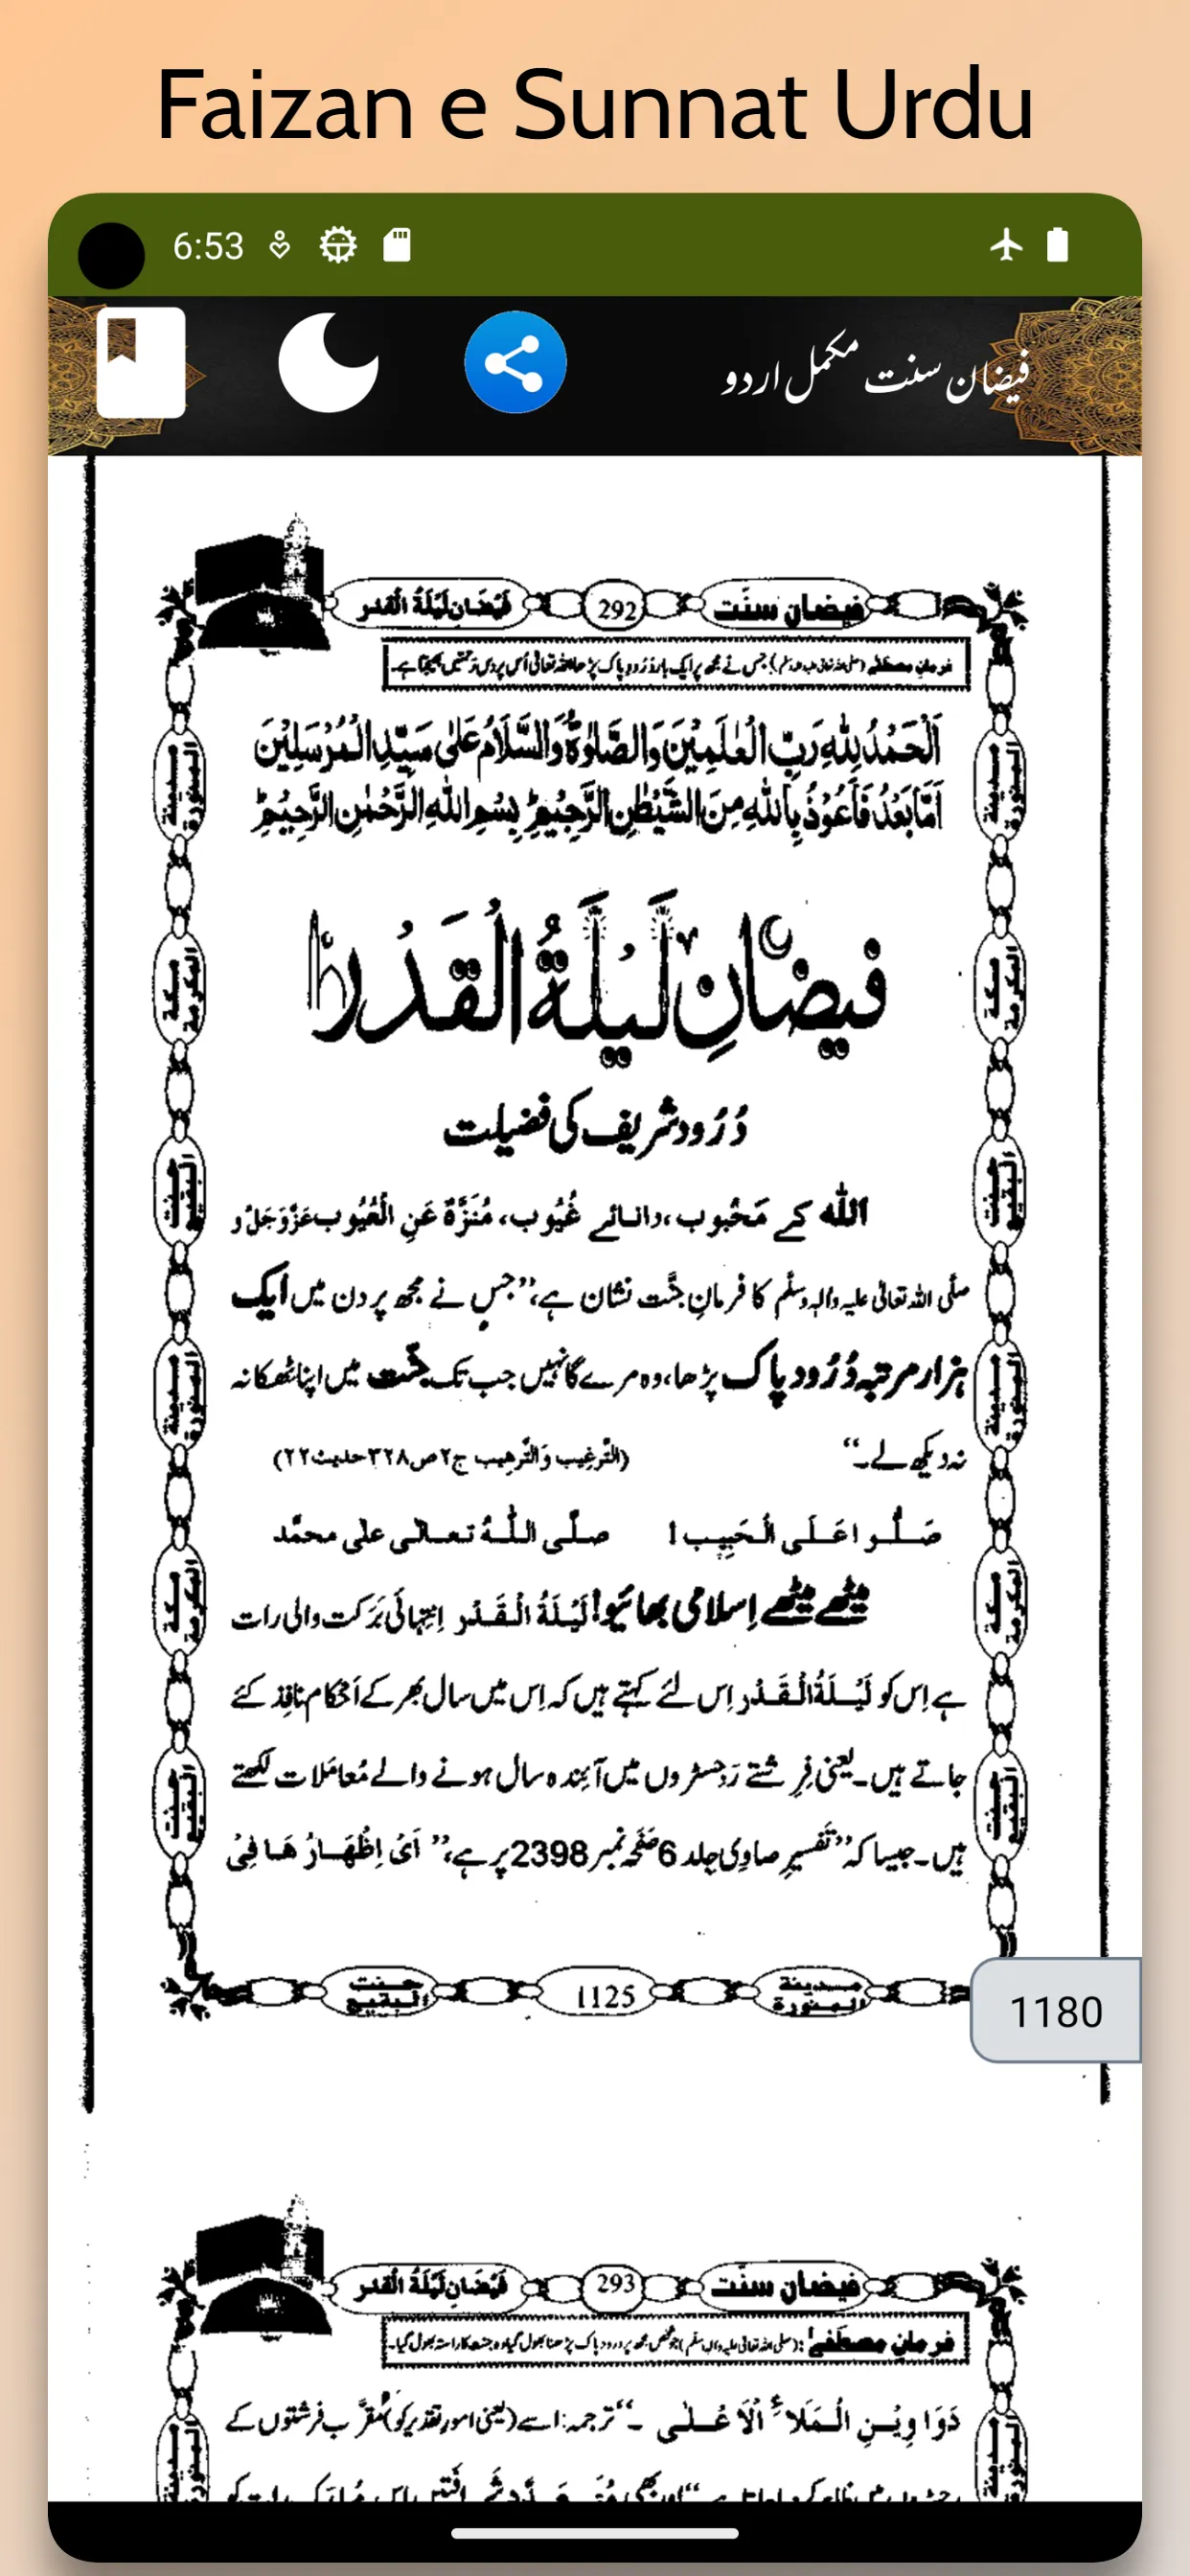 Faizan e Sunnat Urdu
6:53
فیضان سنت مکمل اردو
فیضان سنّت 292 فَیضَانِ لَیْلَۃُ الْقدر
فرمانِ مصطفٰے (صلی اللہ تعالیٰ علیہ واٰلہٖ وسلّم) جس نے مجھ پر ایک بار دُرُود پاک پڑھا اللہ تعالیٰ اُس پر دس رحمتیں بھیجتا ہے۔
اَلْحَمْدُ لِلّٰہِ رَبِّ الْعٰلَمِیْنَ وَالصَّلٰوۃُ وَالسَّلَامُ عَلٰی سَیِّدِ الْمُرْسَلِیْنَ
اَمَّا بَعْدُ فَاَعُوْذُ بِاللّٰہِ مِنَ الشَّیْطٰنِ الرَّجِیْمِ ط بِسْمِ اللّٰہِ الرَّحْمٰنِ الرَّحِیْمِ ط
فیضانِ لَیْلَۃُ الْقَدْر
دُرُود شریف کی فضیلت
اللّٰہ کے مَحْبُوب ، دانائے غُیُوب، مُنَزَّہٌ عَنِ الْعُیُوب عَزَّوَجَلَّ و
صلَّی اللہ تعالیٰ علیہ واٰلہٖ وسلَّم کا فرمانِ جنَّت نشان ہے، ’’جس نے مجھ پر دن میں ایک
ہزار مرتبہ دُرُود پاک پڑھا، وہ مرے گا نہیں جب تک جنّت میں اپنا ٹھکانہ
نہ دیکھ لے۔‘‘ (التَّرغِیب وَالتَّرہِیب ج۲ ص۳۲۸ حدیث۲۲)
صَلُّوا عَلَی الْحَبِیب! صلَّی اللّٰہُ تعالٰی علٰی محمَّد
میٹھے میٹھے اِسلامی بھائیو! لَیْلَۃُ الْقَدْر اِنتِہائی بَرَکت والی رات
ہے اِس کو لَیْلَۃُ الْقَدْر اِس لئے کہتے ہیں کہ اِس میں سال بھر کے اَحْکام نافِذ کئے
جاتے ہیں۔ یعنی فِرِشتے رَجِسٹروں میں آئندہ سال ہونے والے مُعامَلات لکھتے
ہیں۔ جیسا کہ ’’تفسیرِ صاوِی جلد 6 صَفْحَہ نمبر 2398 پر ہے، ’’ اَیْ اِظْھَارُ ھَا فِیْ
مدینۃ المنورۃ
مکۃ المکرمۃ
جنت البقیع
مدینۃ المنورۃ
مکۃ المکرمۃ
جنت البقیع
مدینۃ المنورۃ
مکۃ المکرمۃ
جنت البقیع
مدینۃ المنورۃ
مکۃ المکرمۃ
جنت البقیع
مدینۃ المنورۃ 1125 جنت البقیع
1180
فیضان سنّت 293 فَیضَانِ لَیْلَۃُ الْقدر
فرمانِ مصطفٰے : (صلی اللہ تعالیٰ علیہ واٰلہٖ وسلّم) جو شخص مجھ پر درود پاک پڑھنا بھول گیا وہ جنت کا راستہ بھول گیا۔
دَوَاوِیْنِ الْمَلَاءِ الْاَعْلٰی ۔‘‘ ترجمہ: اسے (یعنی اُمورِ تقدیر کو) مُقَرَّب فرشتوں کے